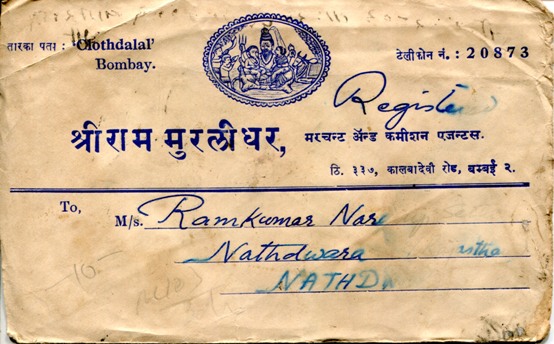 तारका पता : 'Clothdalal'
Bombay.
टेलीफोन नं. : 20873
Registe
श्रीराम मुरलीधर,
मरचन्ट अ‍ॅन्ड कमीशन एजन्टस.
ठि. ३३७, कालबादेवी रोड, बम्बई २.
To,
M/s. Ramkumar Nar
Nathdwara
NATHD